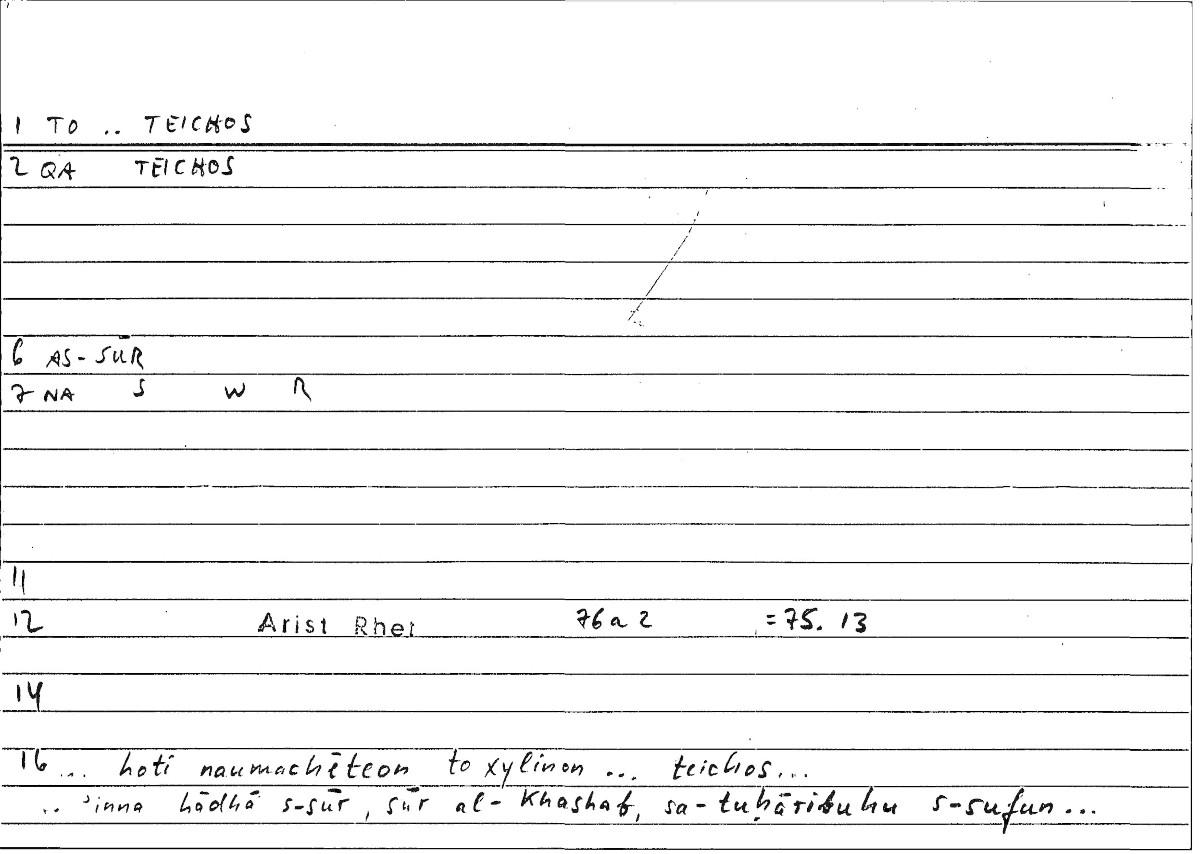 1 TO .. TEICHOS
2 QA TEICHOS
6 AS-SŪR
7 NA S W R
11
12 Arist Rhet 76a2 =75.13
14
16 ... hoti naumachēteon to xylinon ... teichos...
.. 'inna hādhā s-sūr, sūr al-khashab, sa-tuḥāribuhu s-sufun...